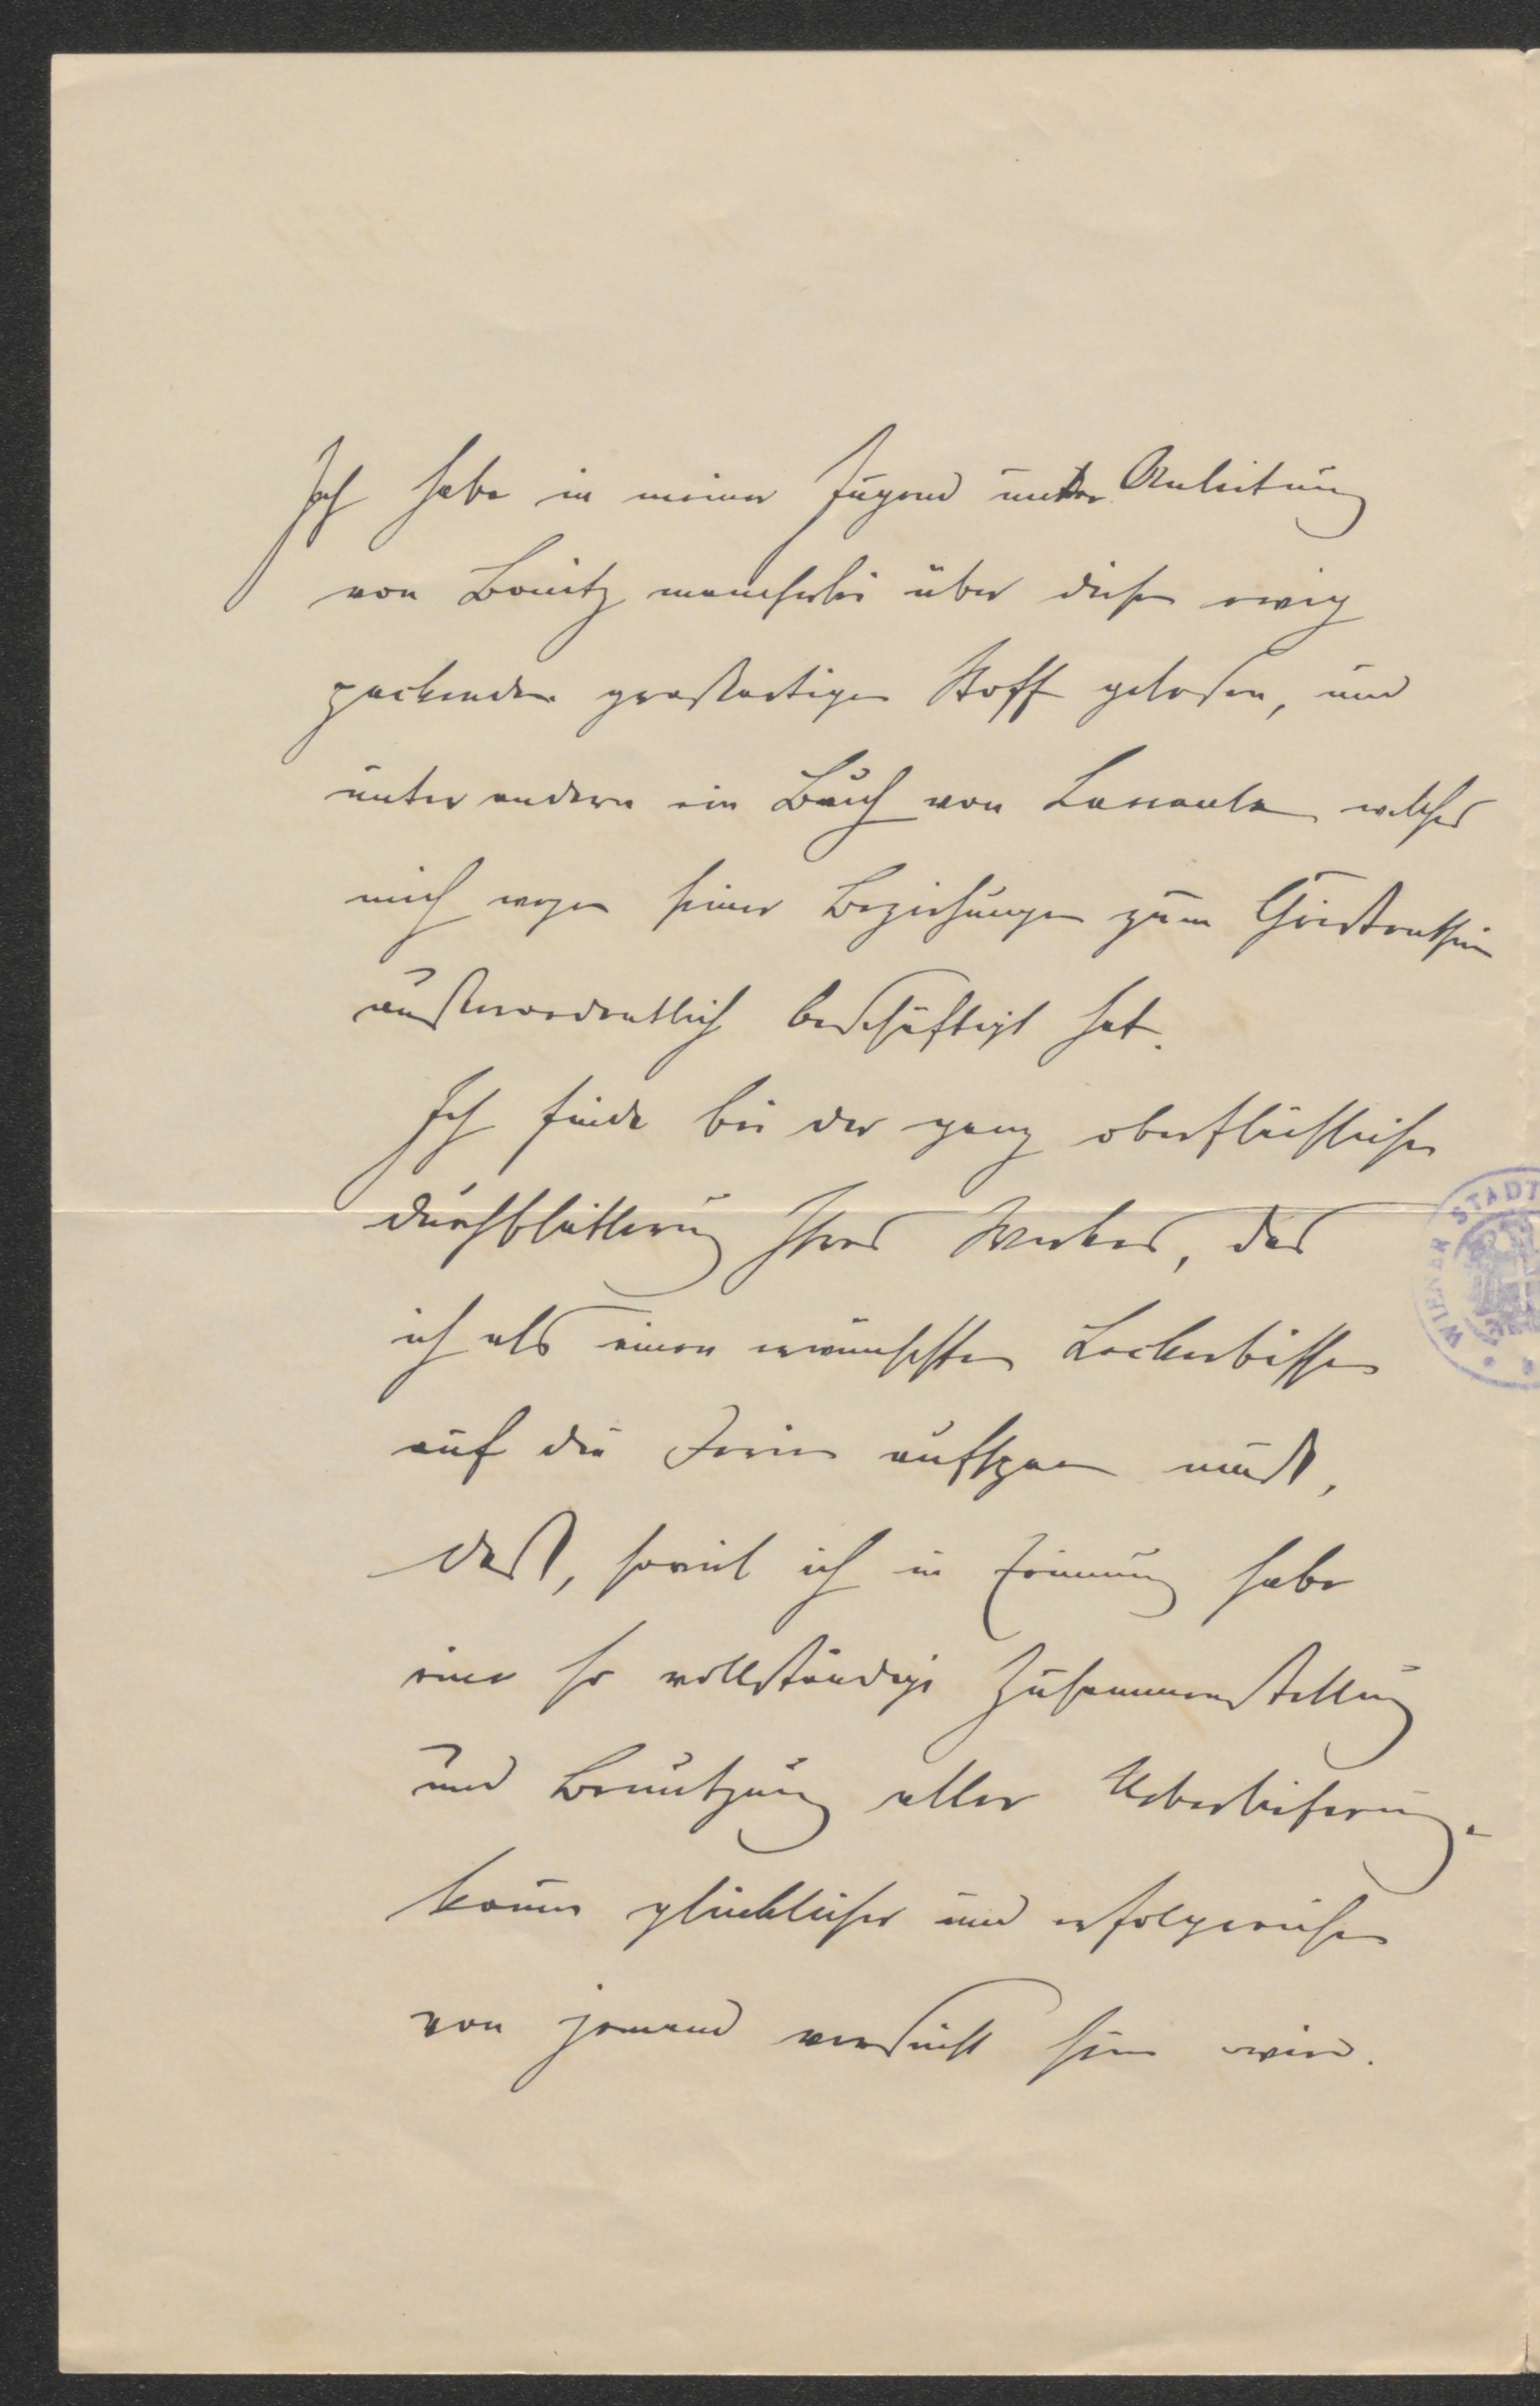 Ich habe in meiner Jugend unter Anleitung
von Bonitz mancherlei über diesen ewig
packenden großartigen Stoff gelesen, und
unter andern ein Buch von Lassaulx welches
mich wegen seiner Beziehungen zum Christenthum
außerordentlich beschäftigt hat.
Ich finde bei der ganz oberflächlichen
Durchblätterung Ihres Werkes, das
ich als einen erwünschten Leckerbissen
auf die Ferien aufsparen muß,
daß, soviel ich in Erinnerung habe
eine so vollständige Zusammenstellung
und Benützung aller Ueberlieferung.
kaum glücklicher und erfolgreicher
von jemand versucht sein wird.
WIENER STADT